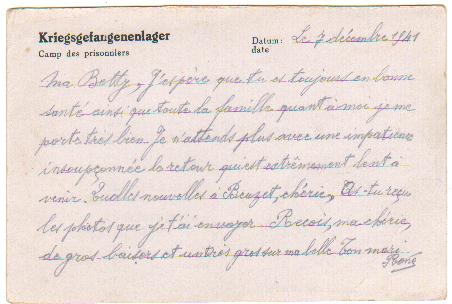 Kriegsgefangenenlager
Camp des prisonniers
Datum: Le 7 décembre 1941
date
Ma Betty, J'espère que tu es toujours en bonne
santé ainsi que toute la famille quant à moi je me
porte très bien. Je n'attends plus avec une impatience
insoupçonnée le retour qui est extrêmement lent à
venir. Quelles nouvelles à Beuzet, chérie, As-tu reçu
les photos que je t'ai envoyer Recois, ma chérie,
de gros baisers et un très gros sur ma belle Ton mari